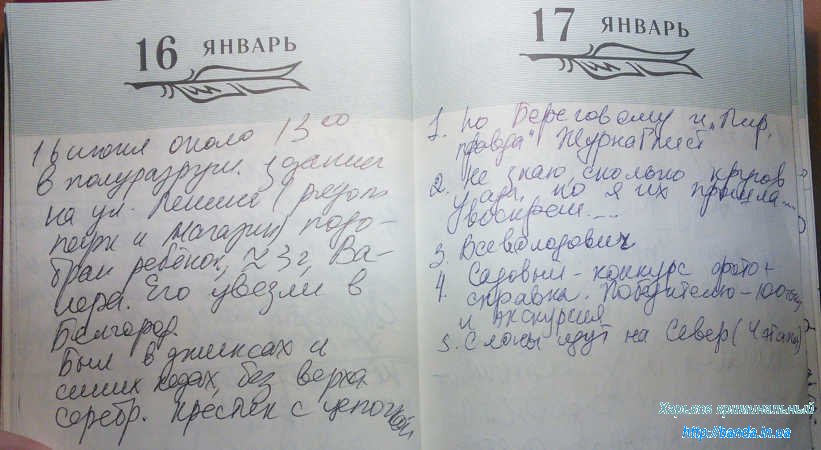 16 ЯНВАРЬ
16 июня около 13 00
в полуразруш. здании
на ул. Ленина (рядом
парк и магазин) подо-
брали ребёнок, ≈ 3 г, Ва-
лера. Его увезли в
Белгород.
Был в джинсах и
синих кедах, без верха
серебр. крестик с цепочкой
17 ЯНВАРЬ
1. по Береговому и „Пир.
правда" Журналист
2. Не знаю, сколько кругов
ада, но я их прошла...
воскреш....
3. Всеволодович
4. Садовый - конкурс фото +
справка. Победителю - 100
и экскурсия
5. Слоны идут на Север (4 этапа)
Харьков криминальный
http://banda.in.ua